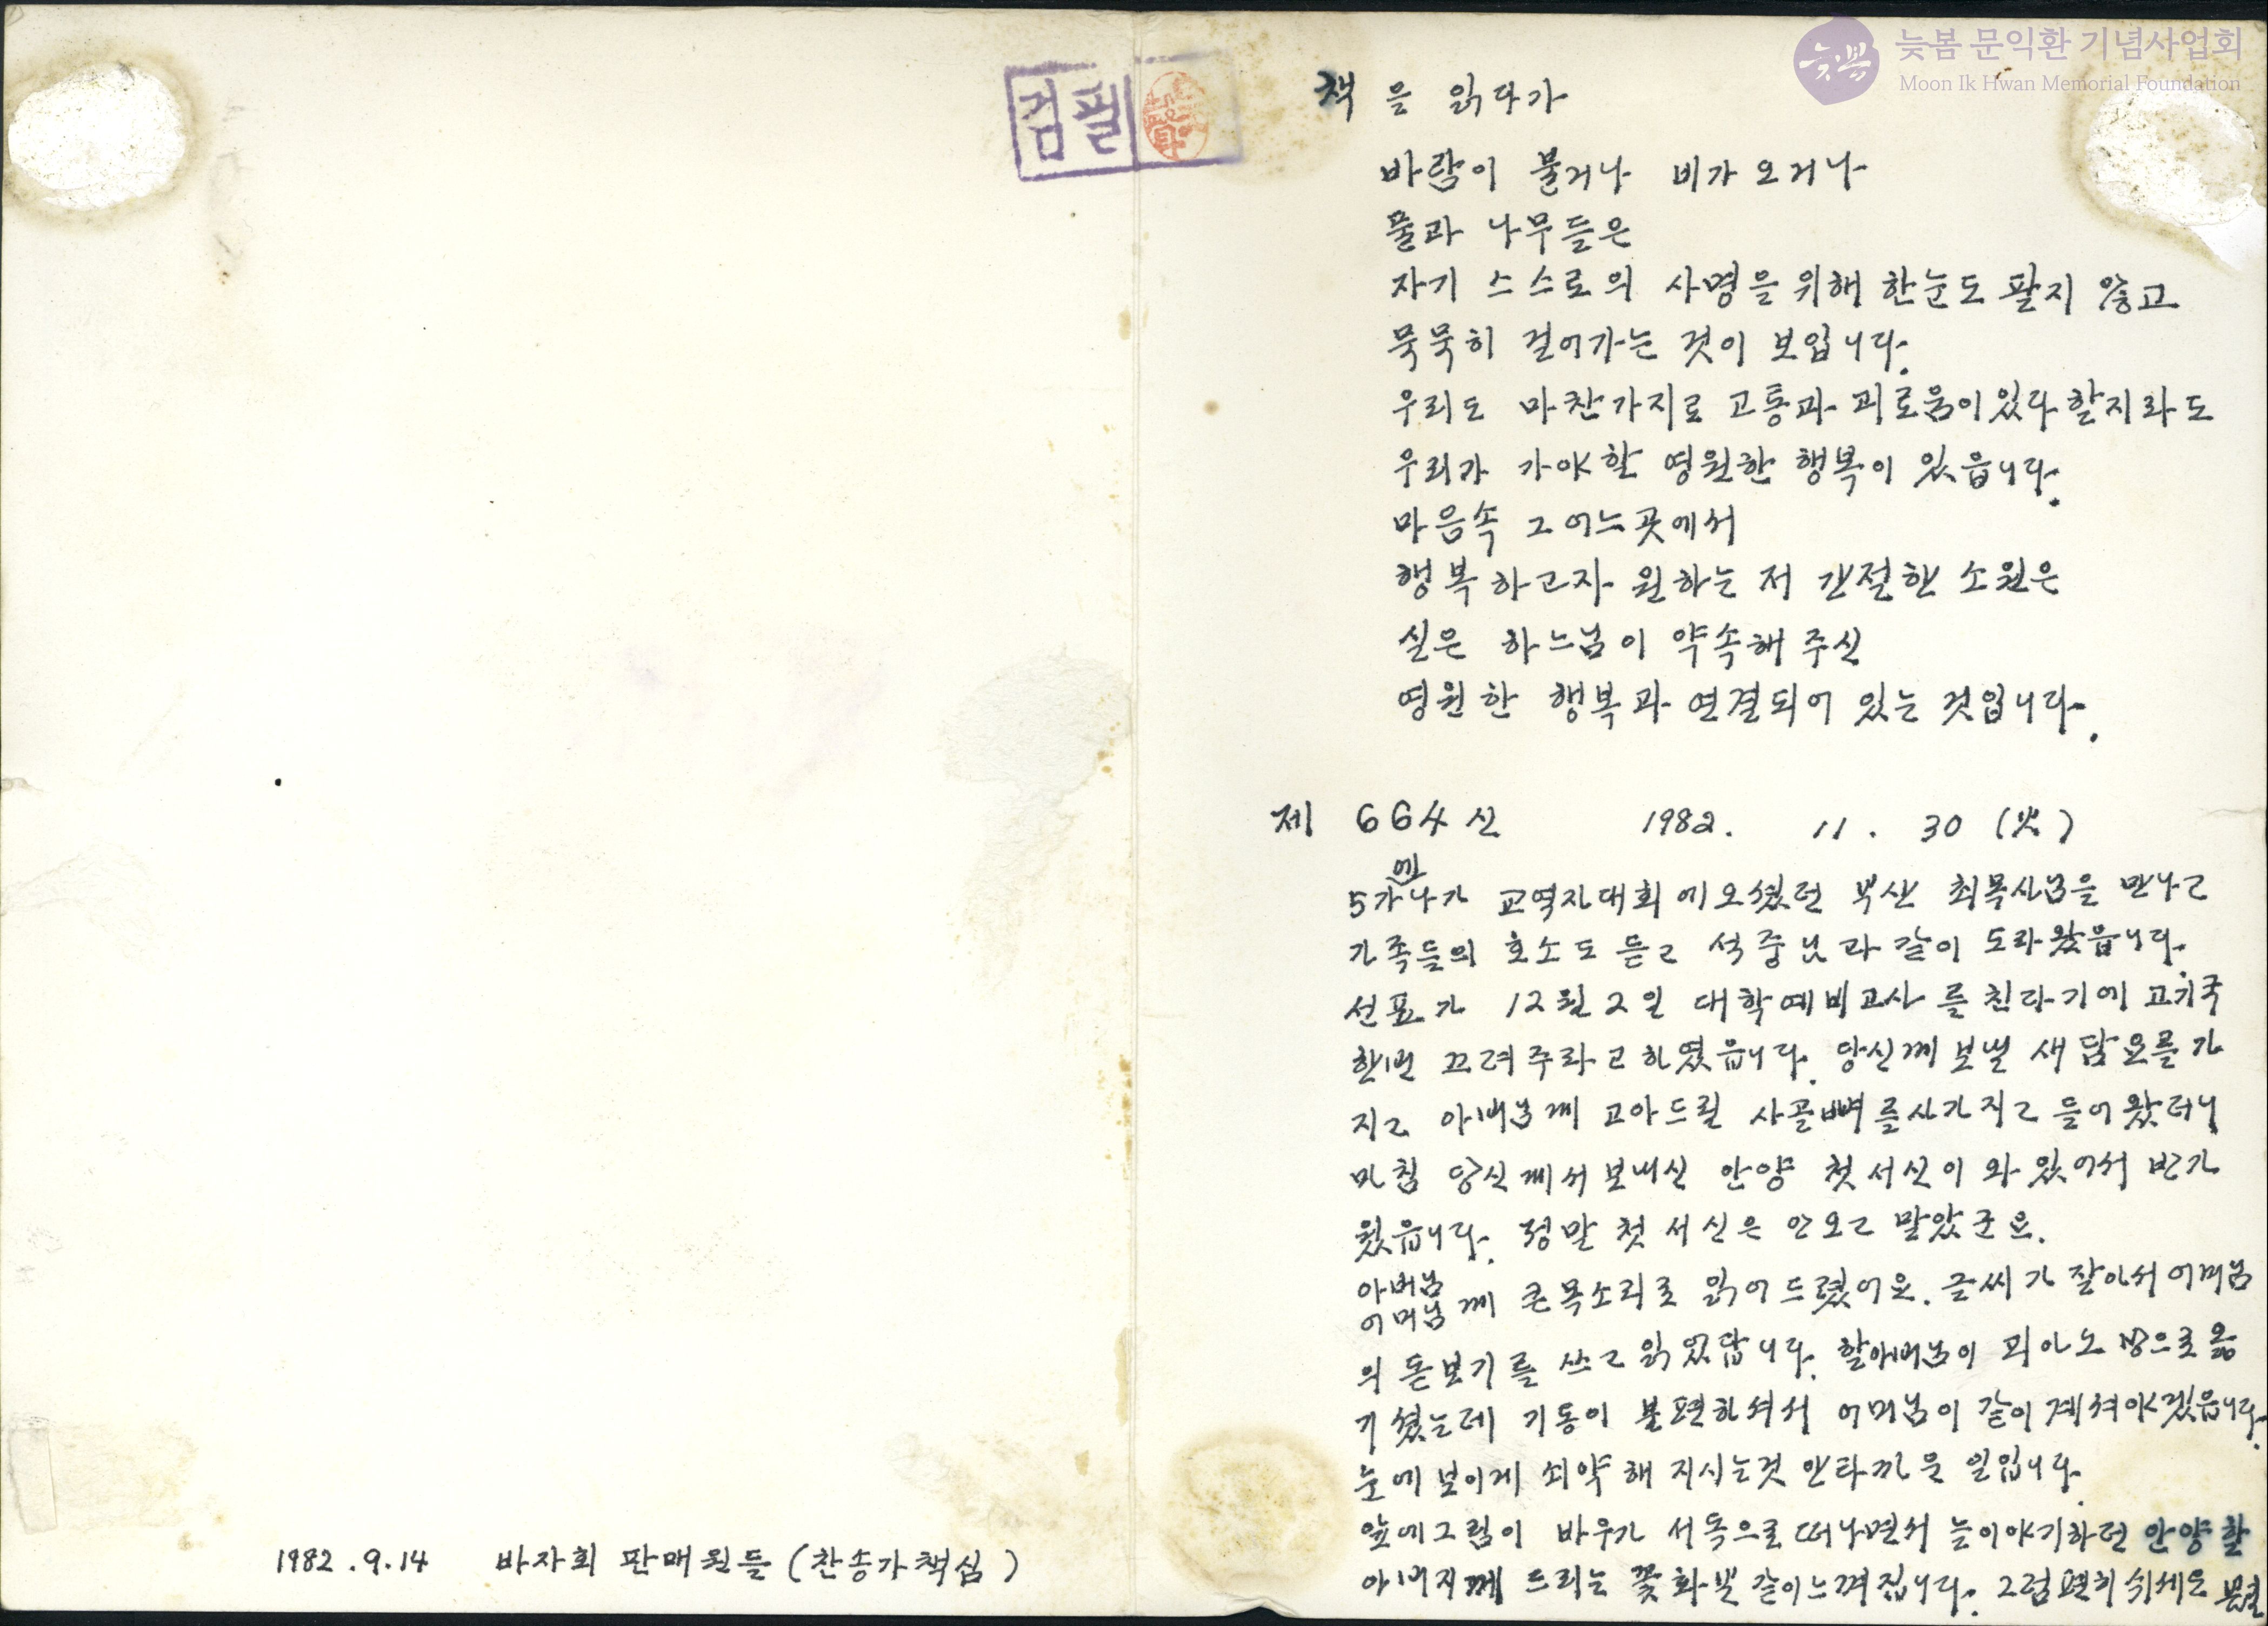 검필
늦봄 문익환 기념사업회
Moon Ik Hwan Memorial Foundation
책을 읽다가
바람이 불거나 비가 오거나
풀과 나무들은
자기 스스로의 사명을 위해 한눈도 팔지 않고
묵묵히 걸어가는 것이 보입니다.
우리도 마찬가지로 고통과 괴로움이 있다 할지라도
우리가 가야할 영원한 행복이 있읍니다.
마음속 그 어느곳에서
행복하고자 원하는 저 간절한 소원은
실은 하느님이 약속해 주신
영원한 행복과 연결되어 있는 것입니다.
제 664신 1982. 11. 30 (火)
5가에 나가 교역자대회에 오셨던 부산 최목사님을 만나고
가족들의 호소도 듣고 석중님과 같이 도라왔읍니다.
선표가 12월 2일 대학예비고사를 친다기에 고기국
한번 끄려주라고 하였읍니다. 당신께 보낼 새 담요를 가
지고 아버님께 고아드릴 사골뼈를 사가지고 들어왔더니
마침 당신께서 보내신 안양 첫 서신이 와 있어서 반가
웠읍니다. 정말 첫 서신은 안오고 말았군요.
아버님 어머님께 큰 목소리로 읽어 드렸어요. 글씨가 잘아서 어머님
의 돋보기를 쓰고 읽었답니다. 할아버님이 피아노 방으로 옮
기셨는데 기동이 불편하셔서 어머님이 같이 계셔야겠읍니다.
눈에 보이게 쇠약해 지시는것 안타까운 일입니다.
앞에 그림이 바우가 서독으로 떠나면서 늘 이야기하던 안양 할
아버지께 드리는 꽃화분 같이 느껴집니다. 그럼 편히 쉬세요
1982.9.14 바자회 판매원들 (찬송가책심)